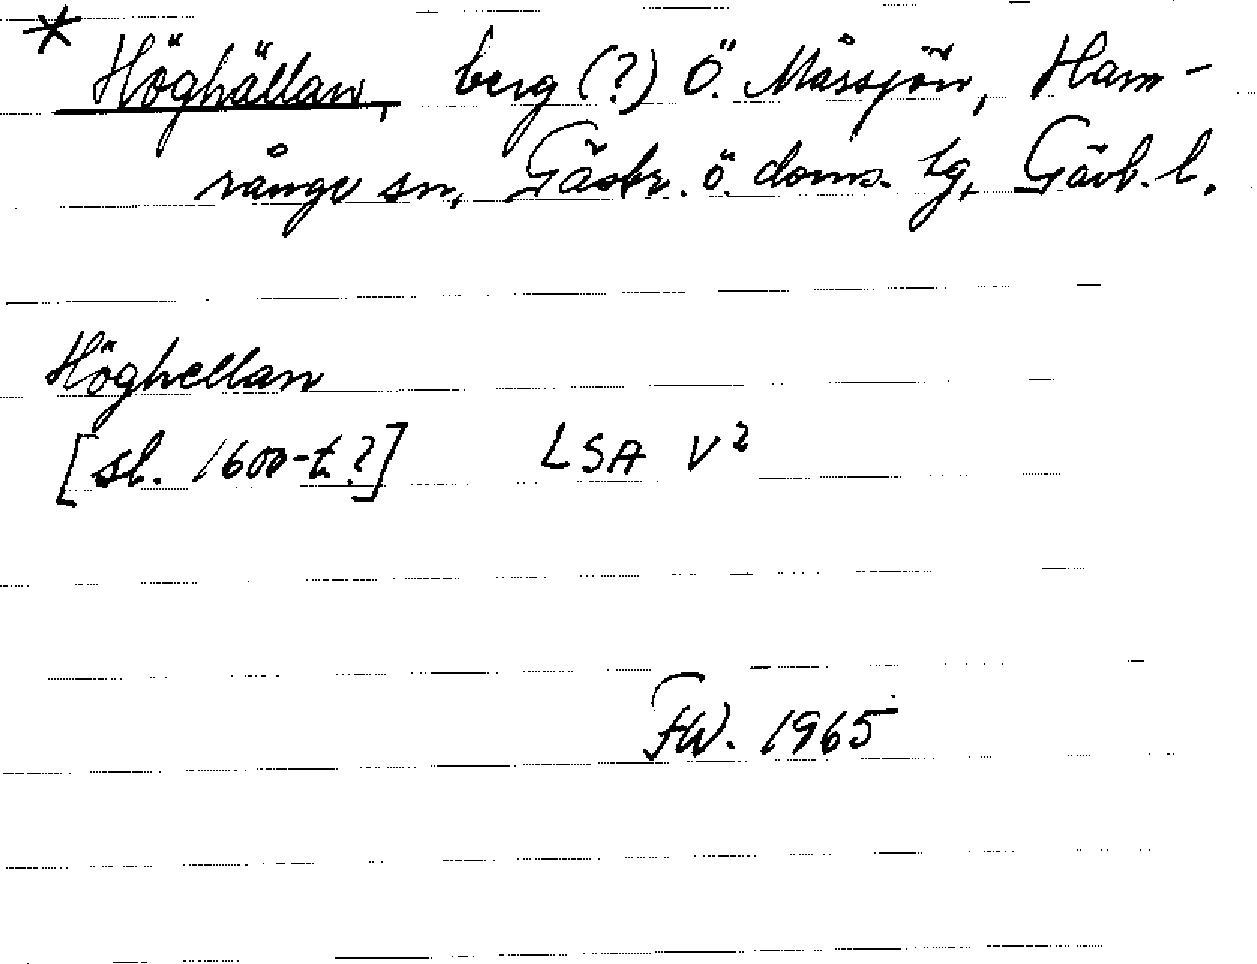 * Höghällan, berg (?) Ö. Måssjön, Ham-
rånge sn, Gästr. ö. doms. tg, Gävl. l.
Höghellan
[sl. 1600-t.?] LSA V²
FW. 1965